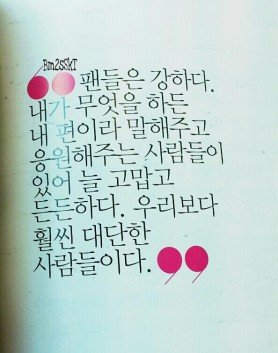 Bm2SSkI
팬들은 강하다.
내가 무엇을 하든
내 편이라 말해주고
응원해주는 사람들이
있어 늘 고맙고
든든하다. 우리보다
훨씬 대단한
사람들이다.